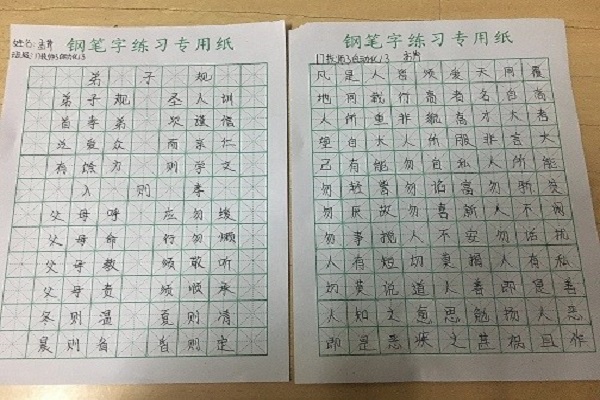 钢笔字练习专用纸
姓名:
班级:
弟子规
弟子规 圣人训
首孝弟 次谨信
泛爱众 而亲仁
有馀力 则学文
入则孝
父母呼 应勿缓
父母命 行勿懒
父母教 须敬听
父母责 须顺承
冬则温 夏则清
晨则省 昏则定
钢笔字练习专用纸
凡是人皆须爱天同覆
地同载行高者名自高
人所重非貌高才大者
望自大人所服非言大
己有能勿自私人所能
勿轻訾勿谄富勿骄贫
勿厌故勿喜新人不闲
勿事搅人不安勿话扰
人有短切莫揭人有私
切莫说道人善即是善
人知之愈思勉扬人恶
即是恶疾之甚祸且作